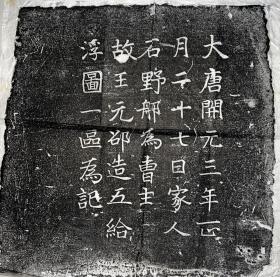 大唐開元三年正
月二十七日家人
石野那為曹主
故王元邵造五給
浮圖一區為記